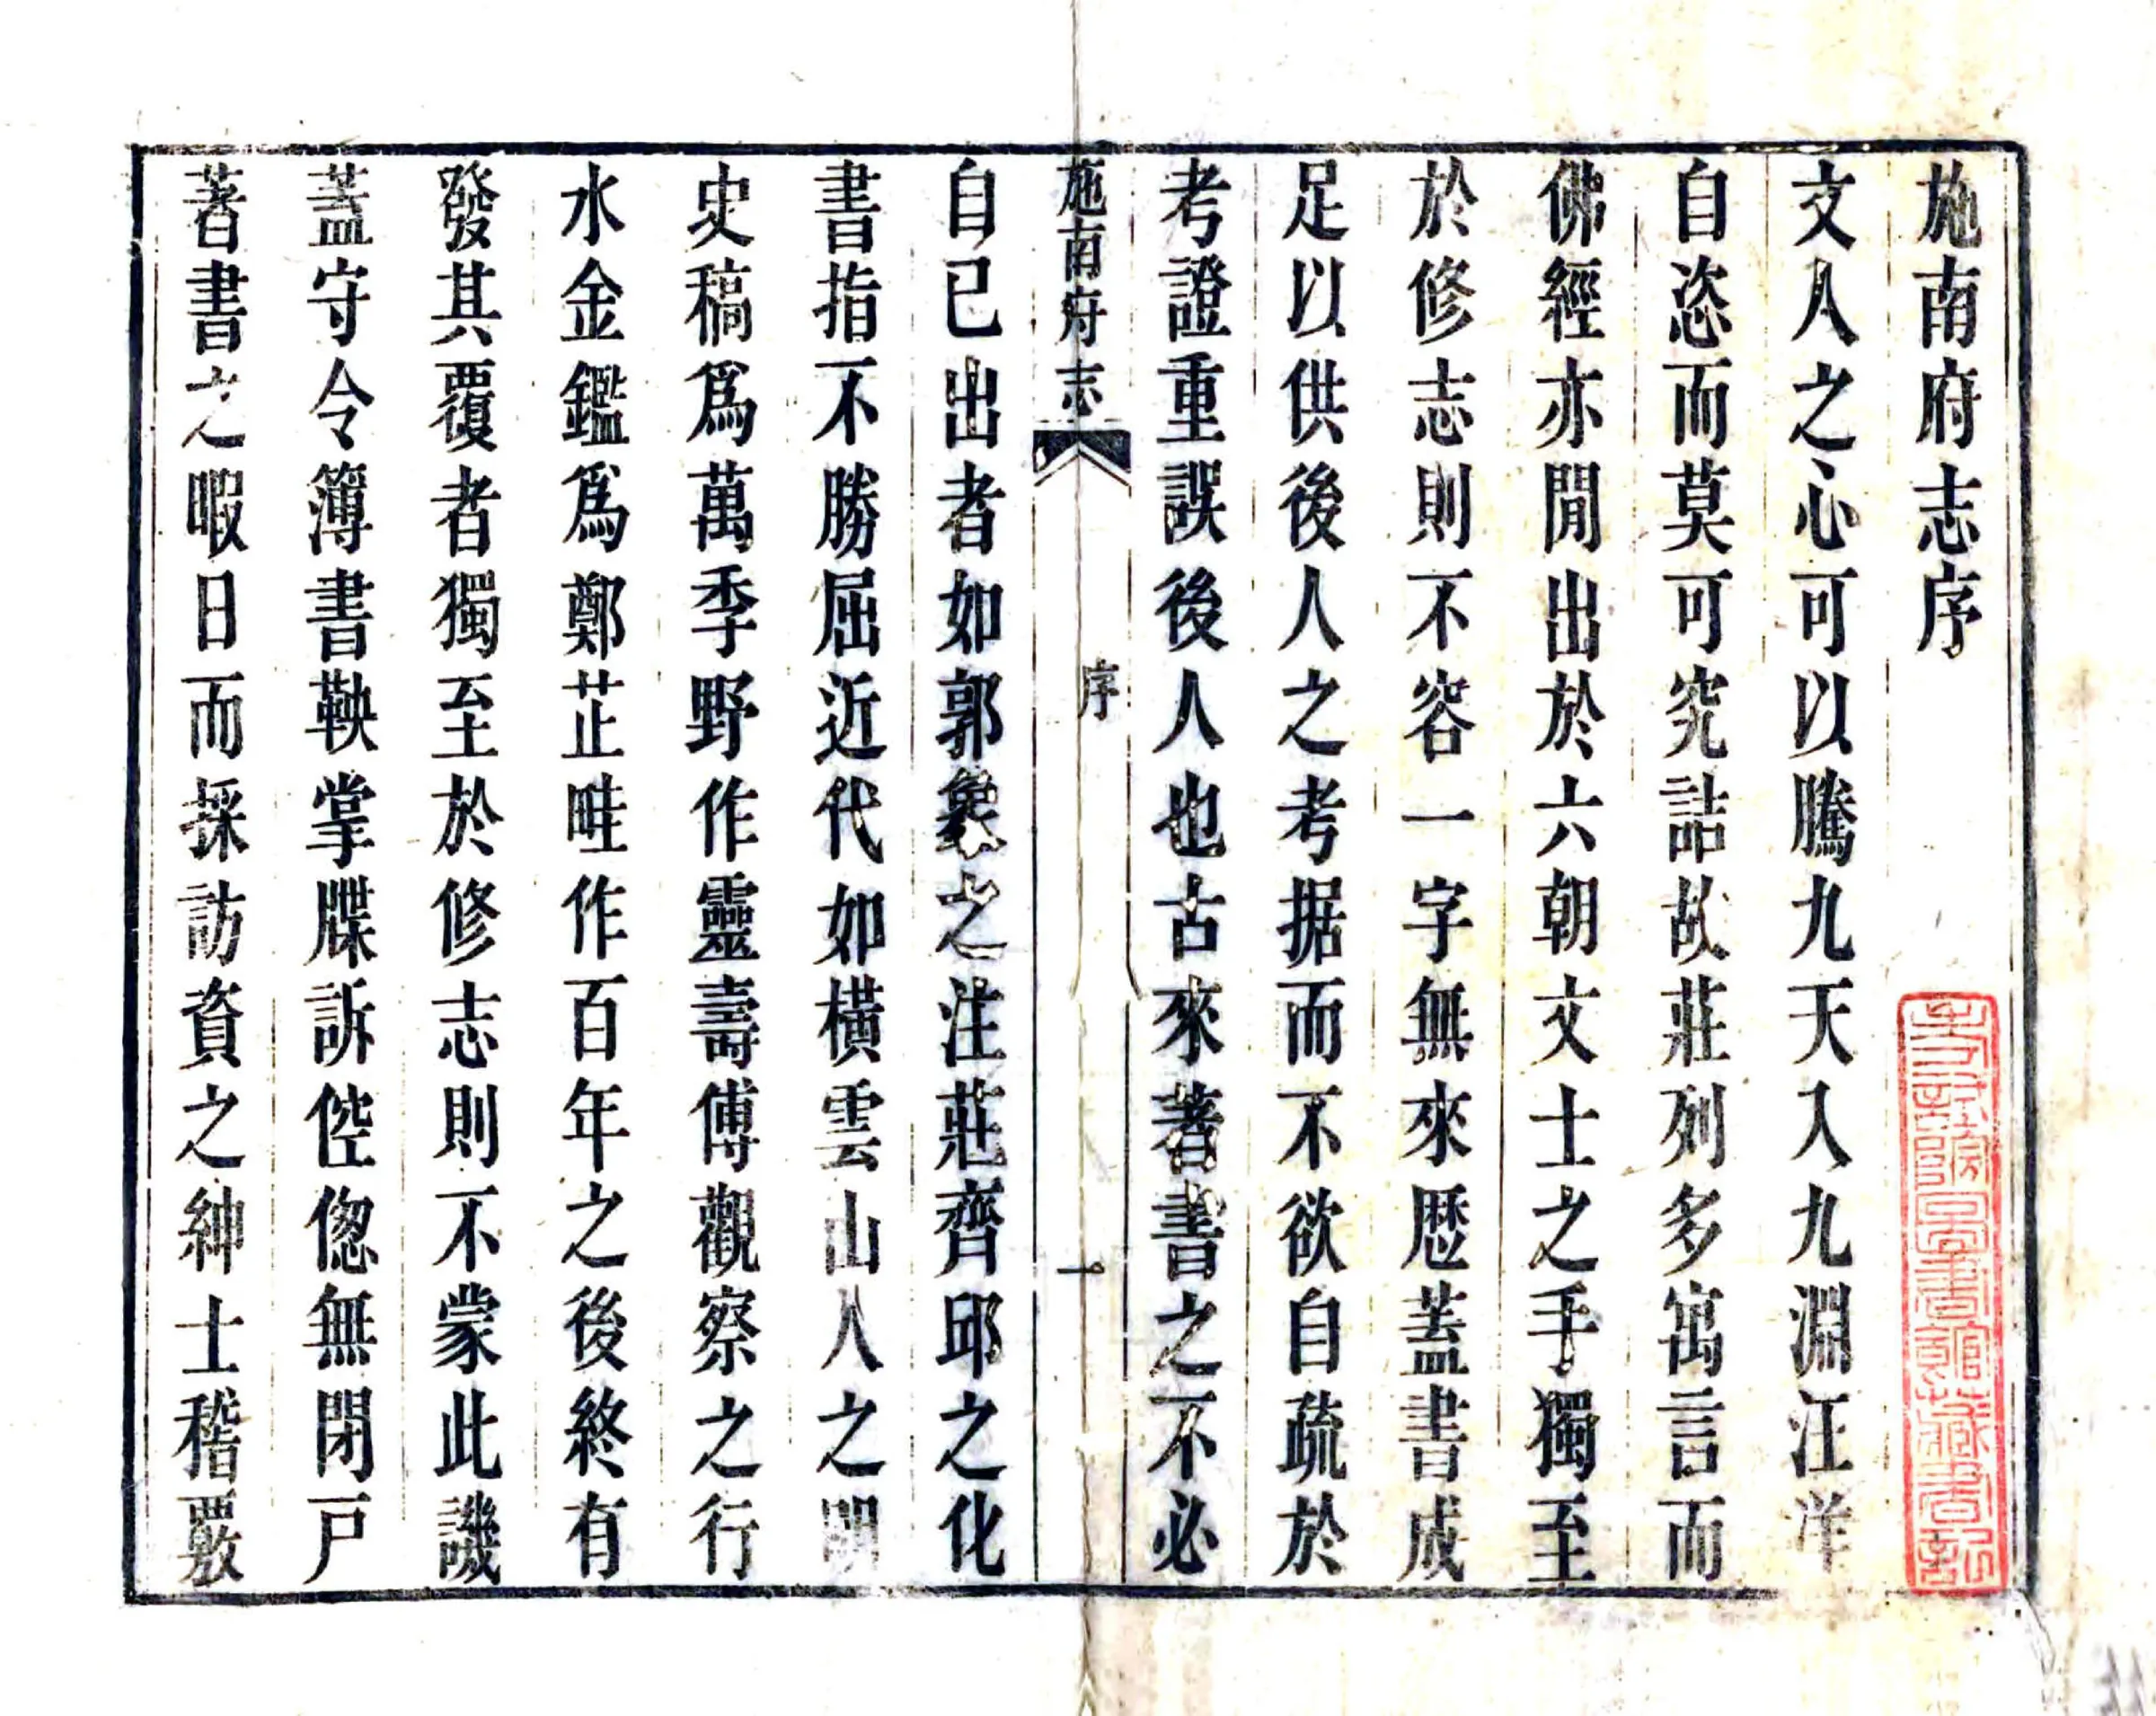 施南府志序
文人之心可以騰九天入九淵汪洋
自恣而莫可究詰故莊列多寓言而
佛經亦閒出於六朝文士之手獨至
於修志則不容一字無來歴蓋書成
足以供後人之考据而不欲自疏於
考證重誤後人也古來著書之不必
施南府志
序
一
自已出者如郭象之注莊齊邱之化
書指不勝屈近代如橫雲山人之明
史稿爲萬季野作靈壽傅觀察之行
水金鑑爲鄭芷畦作百年之後終有
發其覆者獨至於修志則不蒙此譏
蓋守令簿書鞅掌牒訴倥傯無閉戸
著書之暇日而採訪資之紳士稽覈